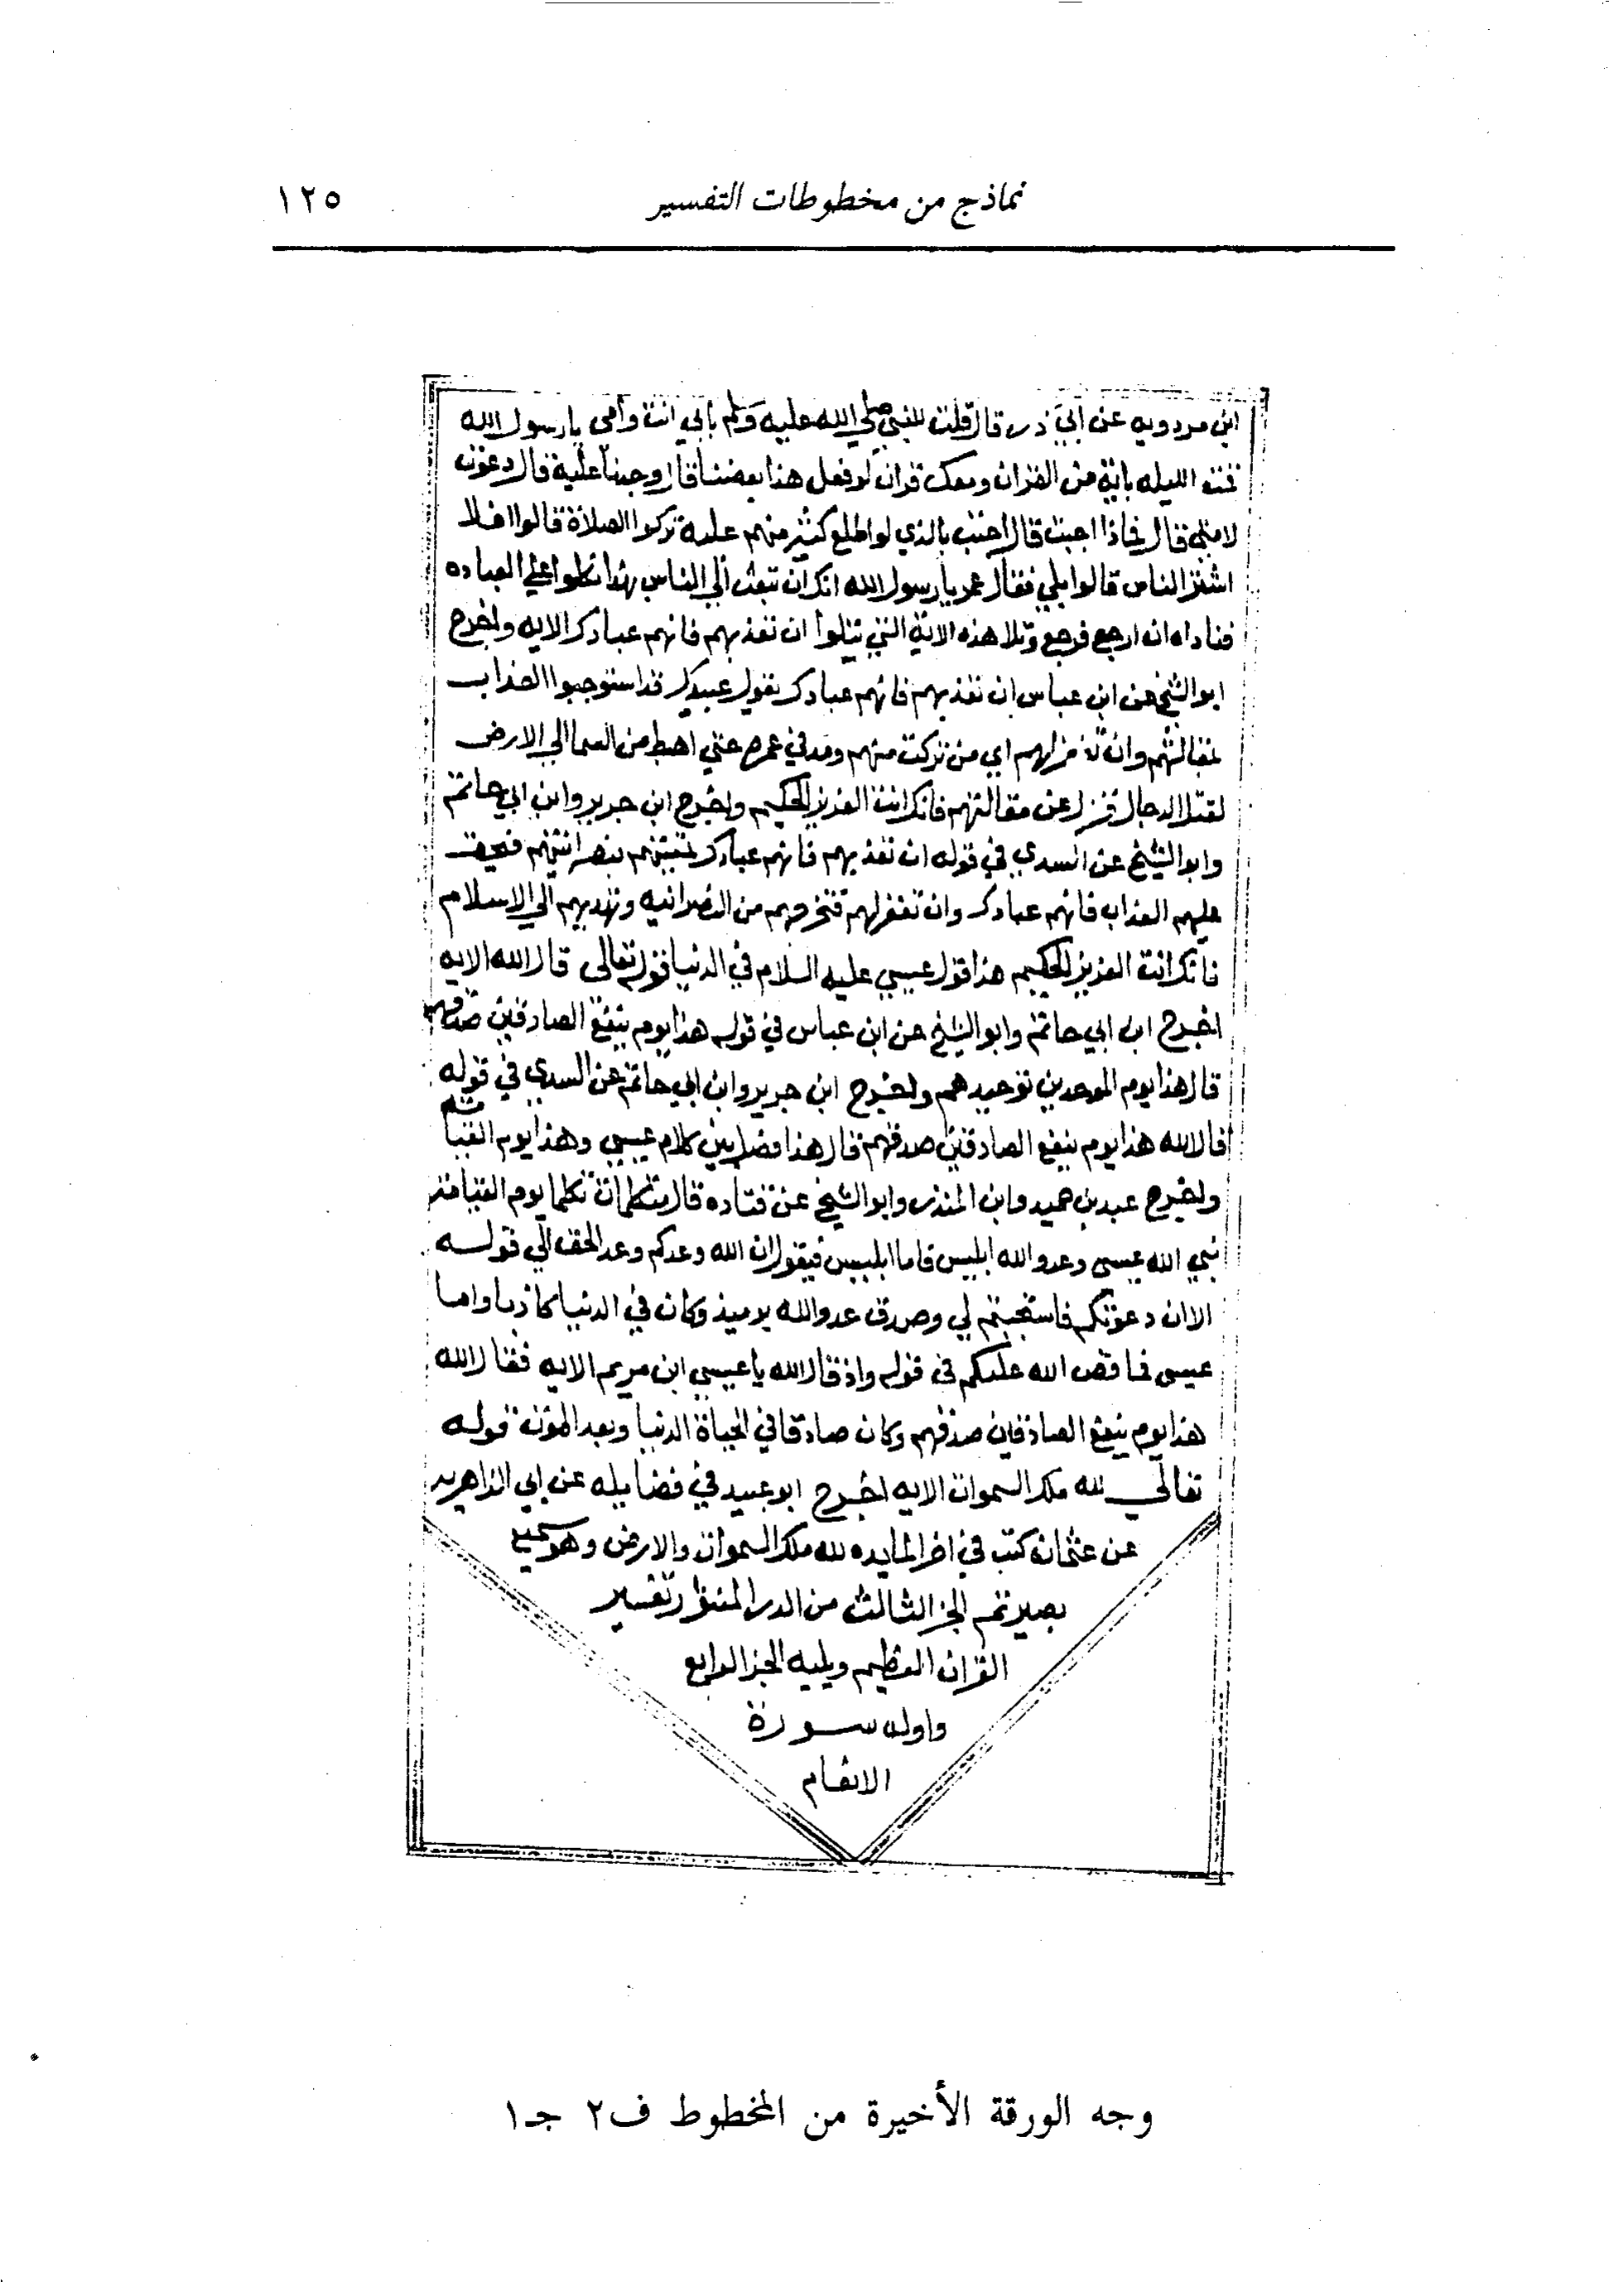 نماذج من مخطوطات التفسير ١٢٥
ابن مردويه عن ابي ذر قال قلت للنبي صلي الله عليه وسلم بابي انت وامي يا رسول الله
قمت الليله باية من القران ومعك قران لو فعل هذا بعضنا قال وجدنا عليه قال دعوت
لامتي قال فماذا اجبت قال اجبت بالذي لو اطلع كثير منهم عليه تركوا الصلاة قالوا افلا
ابشر الناس قالوا بلي فقال عمر يا رسول الله انك ان تبعث الي الناس بهذا نكلوا علي العباده
فناداه ان ارجع فرجع وتلا هذه الاية التي يتلوا ان تعذبهم فانهم عبادك الايه واخرج
ابو الشيخ عن ابن عباس ان تعذبهم فانهم عبادك يقول عبيدك قد استوجبوا العذاب
بمقالتهم وان تغفر لهم اي من تركت منهم ومد في عمره حتي اهبط من السما الي الارض
لقتل الدجال فنزل عن مقالتهم فانك انت العزيز الحكيم واخرج ابن جرير وابن ابي حاتم
وابو الشيخ عن السدي في قوله ان تعذبهم فانهم عبادك تميتهم بنصرانيتهم فتحق
عليهم العذاب فانهم عبادك وان تغفر لهم فتخرجهم من النصرانيه وتهديهم الي الاسلام
فانك انت العزيز الحكيم هذا قول عيسي عليه السلام في الدنيا قوله تعالى قال الله الايه
اخرج ابن ابي حاتم وابو الشيخ عن ابن عباس في قوله هذا يوم ينفع الصادقين صدقهم
قال هذا يوم الموحدين توحيدهم واخرج ابن جرير وابن ابي حاتم عن السدي في قوله
قال الله هذا يوم ينفع الصادقين صدقهم قال هذا فصل بين كلام عيسي وهذا يوم القيامة
واخرج عبد بن حميد وابن المنذر وابو الشيخ عن قتاده قال متكلمان تكلما يوم القيامة
نبي الله عيسي وعدو الله ابليس فاما ابليس فيقول ان الله وعدكم وعد الحق الي قوله
الا ان دعوتكم فاستجبتم لي وصدق عدو الله يوميذ وكان في الدنيا كاذبا واما
عيسى فما قص الله عليكم في قوله واذ قال الله يا عيسي ابن مريم الايه فقال الله
هذا يوم ينفع الصادقين صدقهم وكان صادقا في الحياة الدنيا وبعد الموت قوله
تعالي لله ملك السموات الايه اخرج ابو عبيد في فضايله عن ابي الزاهريه
عن عثمان كتب في اخر المايده لله ملك السموات والارض وهو سميع
بصير تم الجز الثالث من الدر المنثور تفسير
القران العظيم ويليه الجز الرابع
واوله سورة
الانعام
وجه الورقة الأخيرة من المخطوط ف٢ جـ١